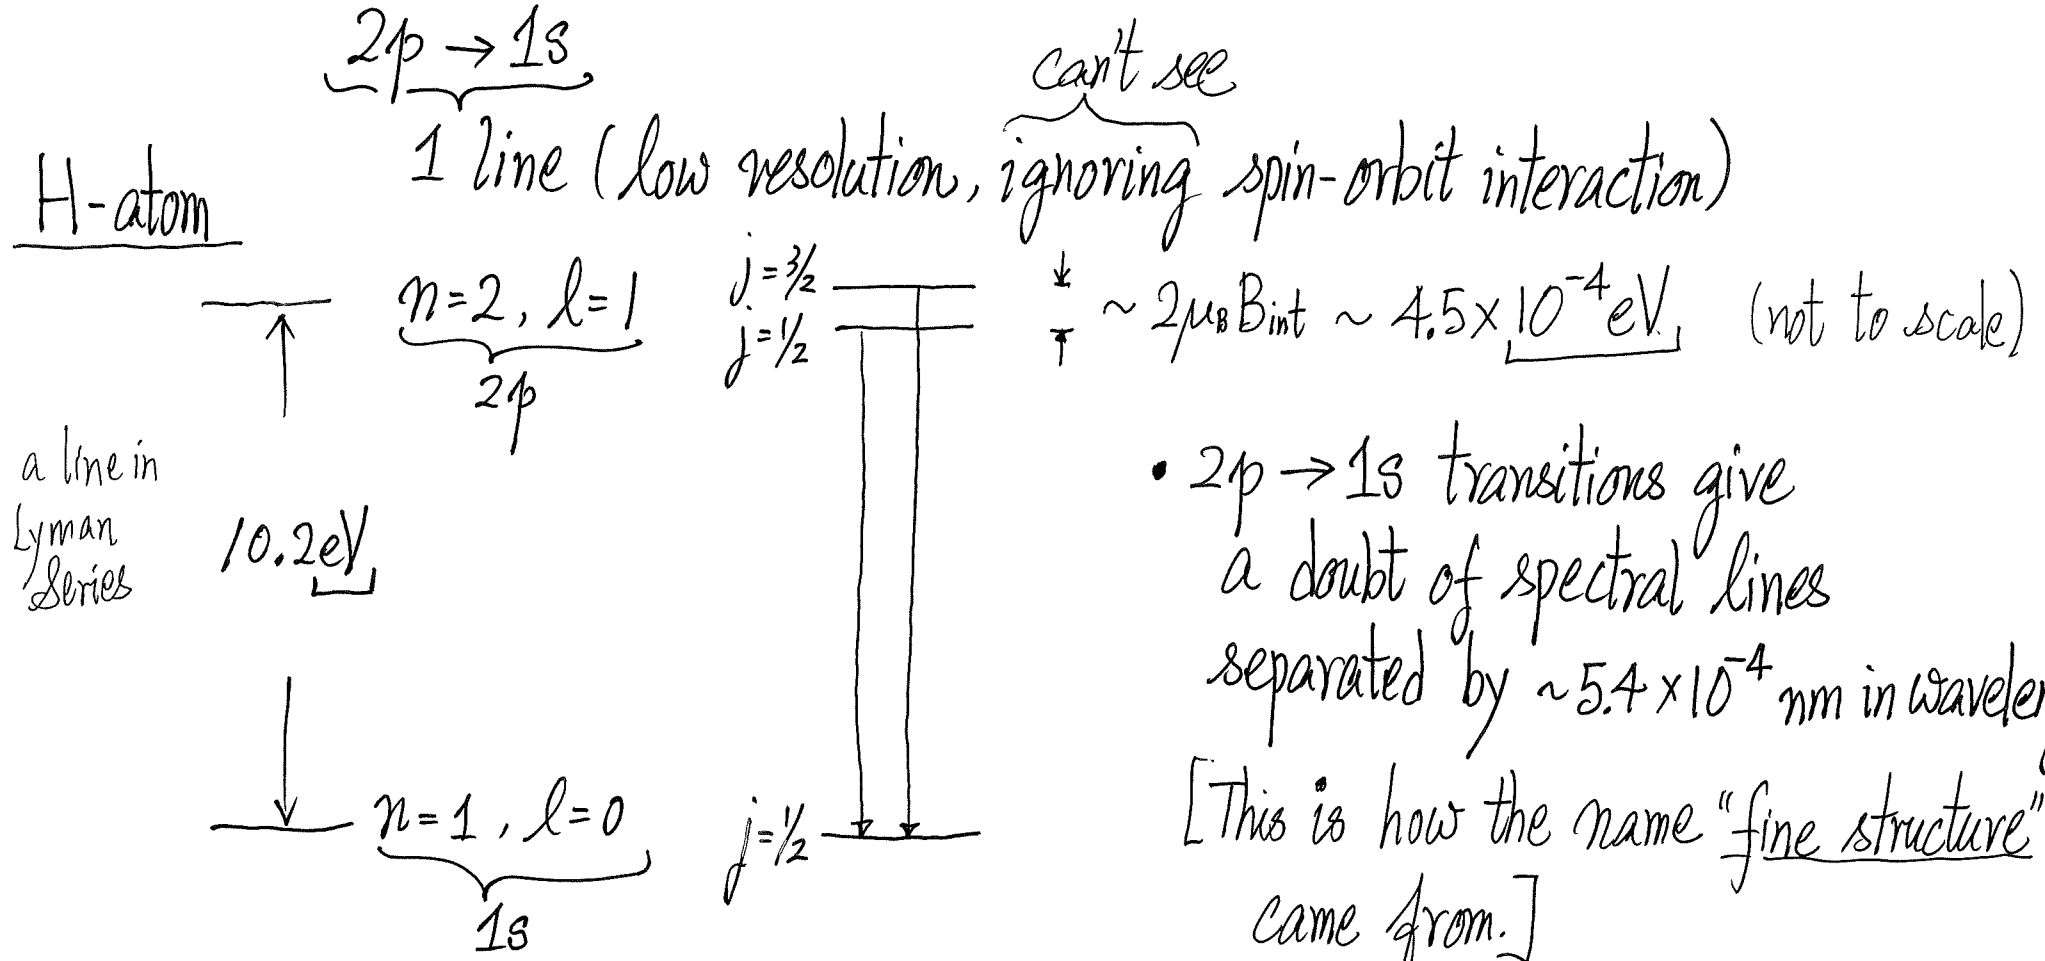 2p → 1s
can't see
1 line (low resolution, ignoring spin-orbit interaction)
H-atom
n=2, l=1
2p
j=3/2
j=1/2
~ 2μB Bint ~ 4.5×10⁻⁴ eV (not to scale)
a line in
Lyman
Series
10.2eV
• 2p → 1s transitions give
a doubt of spectral lines
separated by ~5.4×10⁻⁴ nm in wavele
[This is how the name "fine structure"
came from.]
n=1, l=0
1s
j=1/2